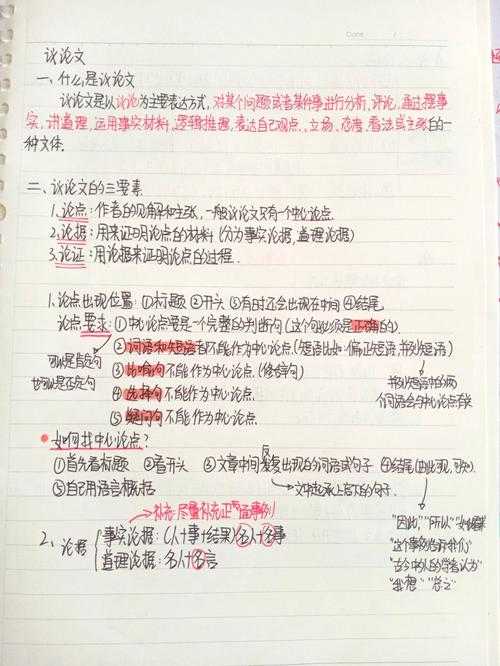 Date
议论文
一、什么是议论文
议论文是以议论为主要表达方式,对某个问题或者某件事进行分析、评论,通过摆事
实、讲道理,运用事实材料、逻辑推理,表达自己观点、立场、态度、看法或主张的一
种文体.
二、议论文的三要素
1.论点:作者的见解和主张,一般议论文只有一个中心论点.
2.论据:用来证明论点的材料(分为事实论据,道理论据)
3.论证:用论据来证明论点的过程.
1.论点出现位置:①标题 ②开头 ③有时还会出现在中间 ④结尾
论点要求:①中心论点要是一个完整的判断句(这个句必须是正确的)
②词语和短语都不能作为中心论点.(短语比如:偏正短语,并列短语)
可以是肯定句
也可以是否定句
③比喻句不能作为中心论点.(修辞句)
④选择句不能作为中心论点
⑤疑问句不能作为中心论点.
并列短语中的两
个词语会与中心论点有关
如何找中心论点?
①首先看标题 ②看开头 ③文章中间反复出现的词语或句子 ④结尾(由此可见,可知)
⑤自己用语言概括
文中起承上启下的句子.
补考:尽量补充正面事例
2、论据
事实论据:(人+事+结果)名人+名事
道理论据:名人+名言
"因此" "所以"
"这个事例告诉我们"
"古今中外的学者认为"
"我想" "总之"